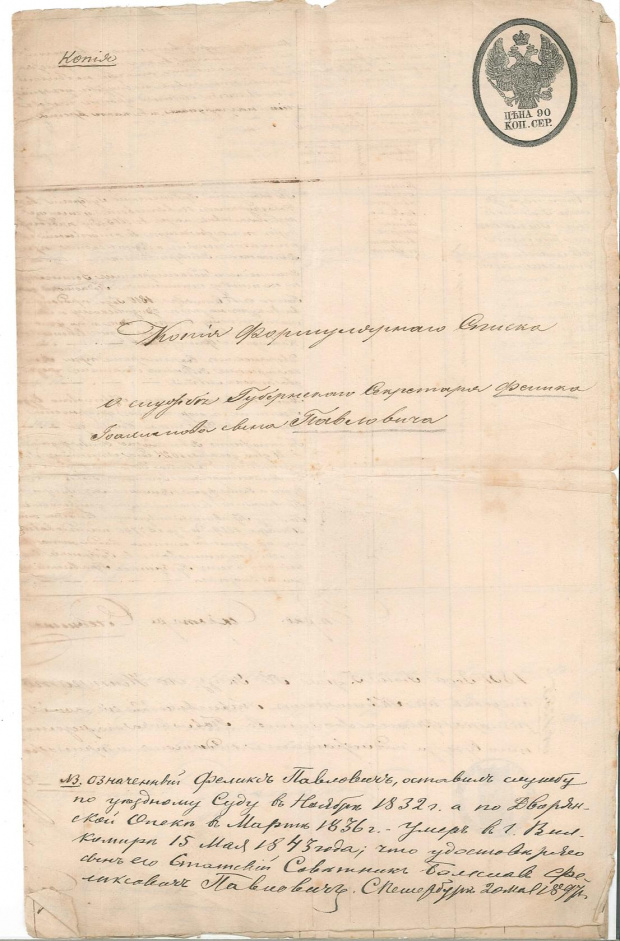 Копія
ЦѢНА 90
КОП. СЕР.
Копія Формулярнаго Списка
о службѣ Губернскаго Секретаря Феликса
Іоаннова сына Павловича
NB. означенный Феликсъ Павловичъ, оставилъ службу
по уѣздному Суду въ Ноябрѣ 1832 г. а по Дворян-
ской Опекѣ въ Мартѣ 1836 г. - умеръ въ г. Вил-
комирѣ 15 Мая 1843 года; что удостовѣряю
сынъ его Статскій Совѣтникъ Болеславъ Фе-
ликсовичъ Павловичъ. С Петербургъ 20 мая 1897 г.